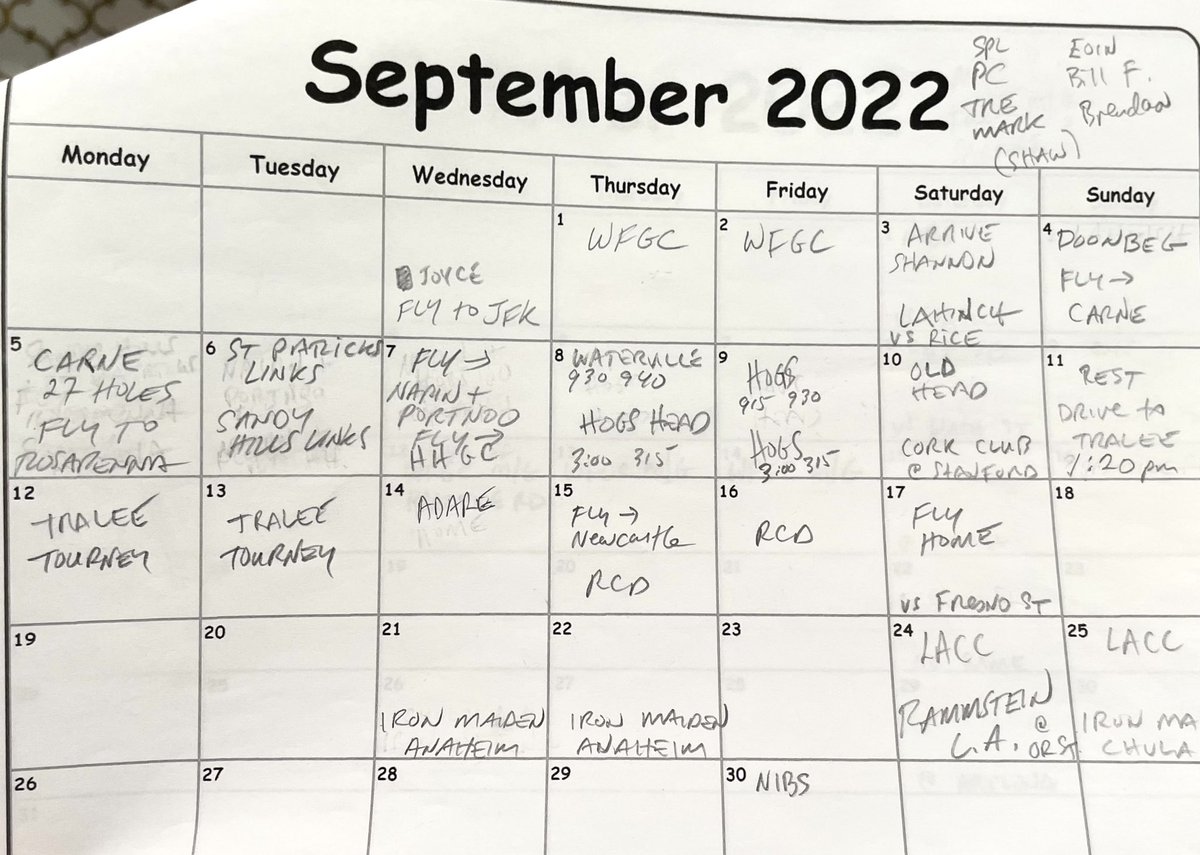 September 2022
SPL
PC
TRE
MARK
(SHAW)
EOIN
Bill F.
Brendan
Monday
Tuesday
Wednesday
Thursday
Friday
Saturday
Sunday
JOYCE
FLY to JFK
1
WFGC
2
WFGC
3
ARRIVE
SHANNON
LAHINCH
VS RICE
4
DOONBEG
FLY →
CARNE
5
CARNE
27 HOLES
FLY TO
ROSAPENNA
6
ST PATRICKS
LINKS
SANDY
HILLS LINKS
7
FLY →
NARIN +
PORTNOO
FLY →
HHGC
8
WATERVILLE
930, 940
HOGS HEAD
3:00 315
9
HOGS
915 930
HOGS
3:00 315
10
OLD
HEAD
CORK CLUB
@ STANFORD
11
REST
DRIVE to
TRALEE
1:20 pm
12
TRALEE
TOURNEY
13
TRALEE
TOURNEY
14
ADARE
15
FLY →
Newcastle
RCD
16
RCD
17
FLY
HOME
VS FRESNO ST
18
19
20
21
IRON MAIDEN
ANAHEIM
22
IRON MAIDEN
ANAHEIM
23
24
LACC
RAMMSTEIN
L.A.
@
ORST
25
LACC
IRON MA
CHULA
26
27
28
29
30
NIBS